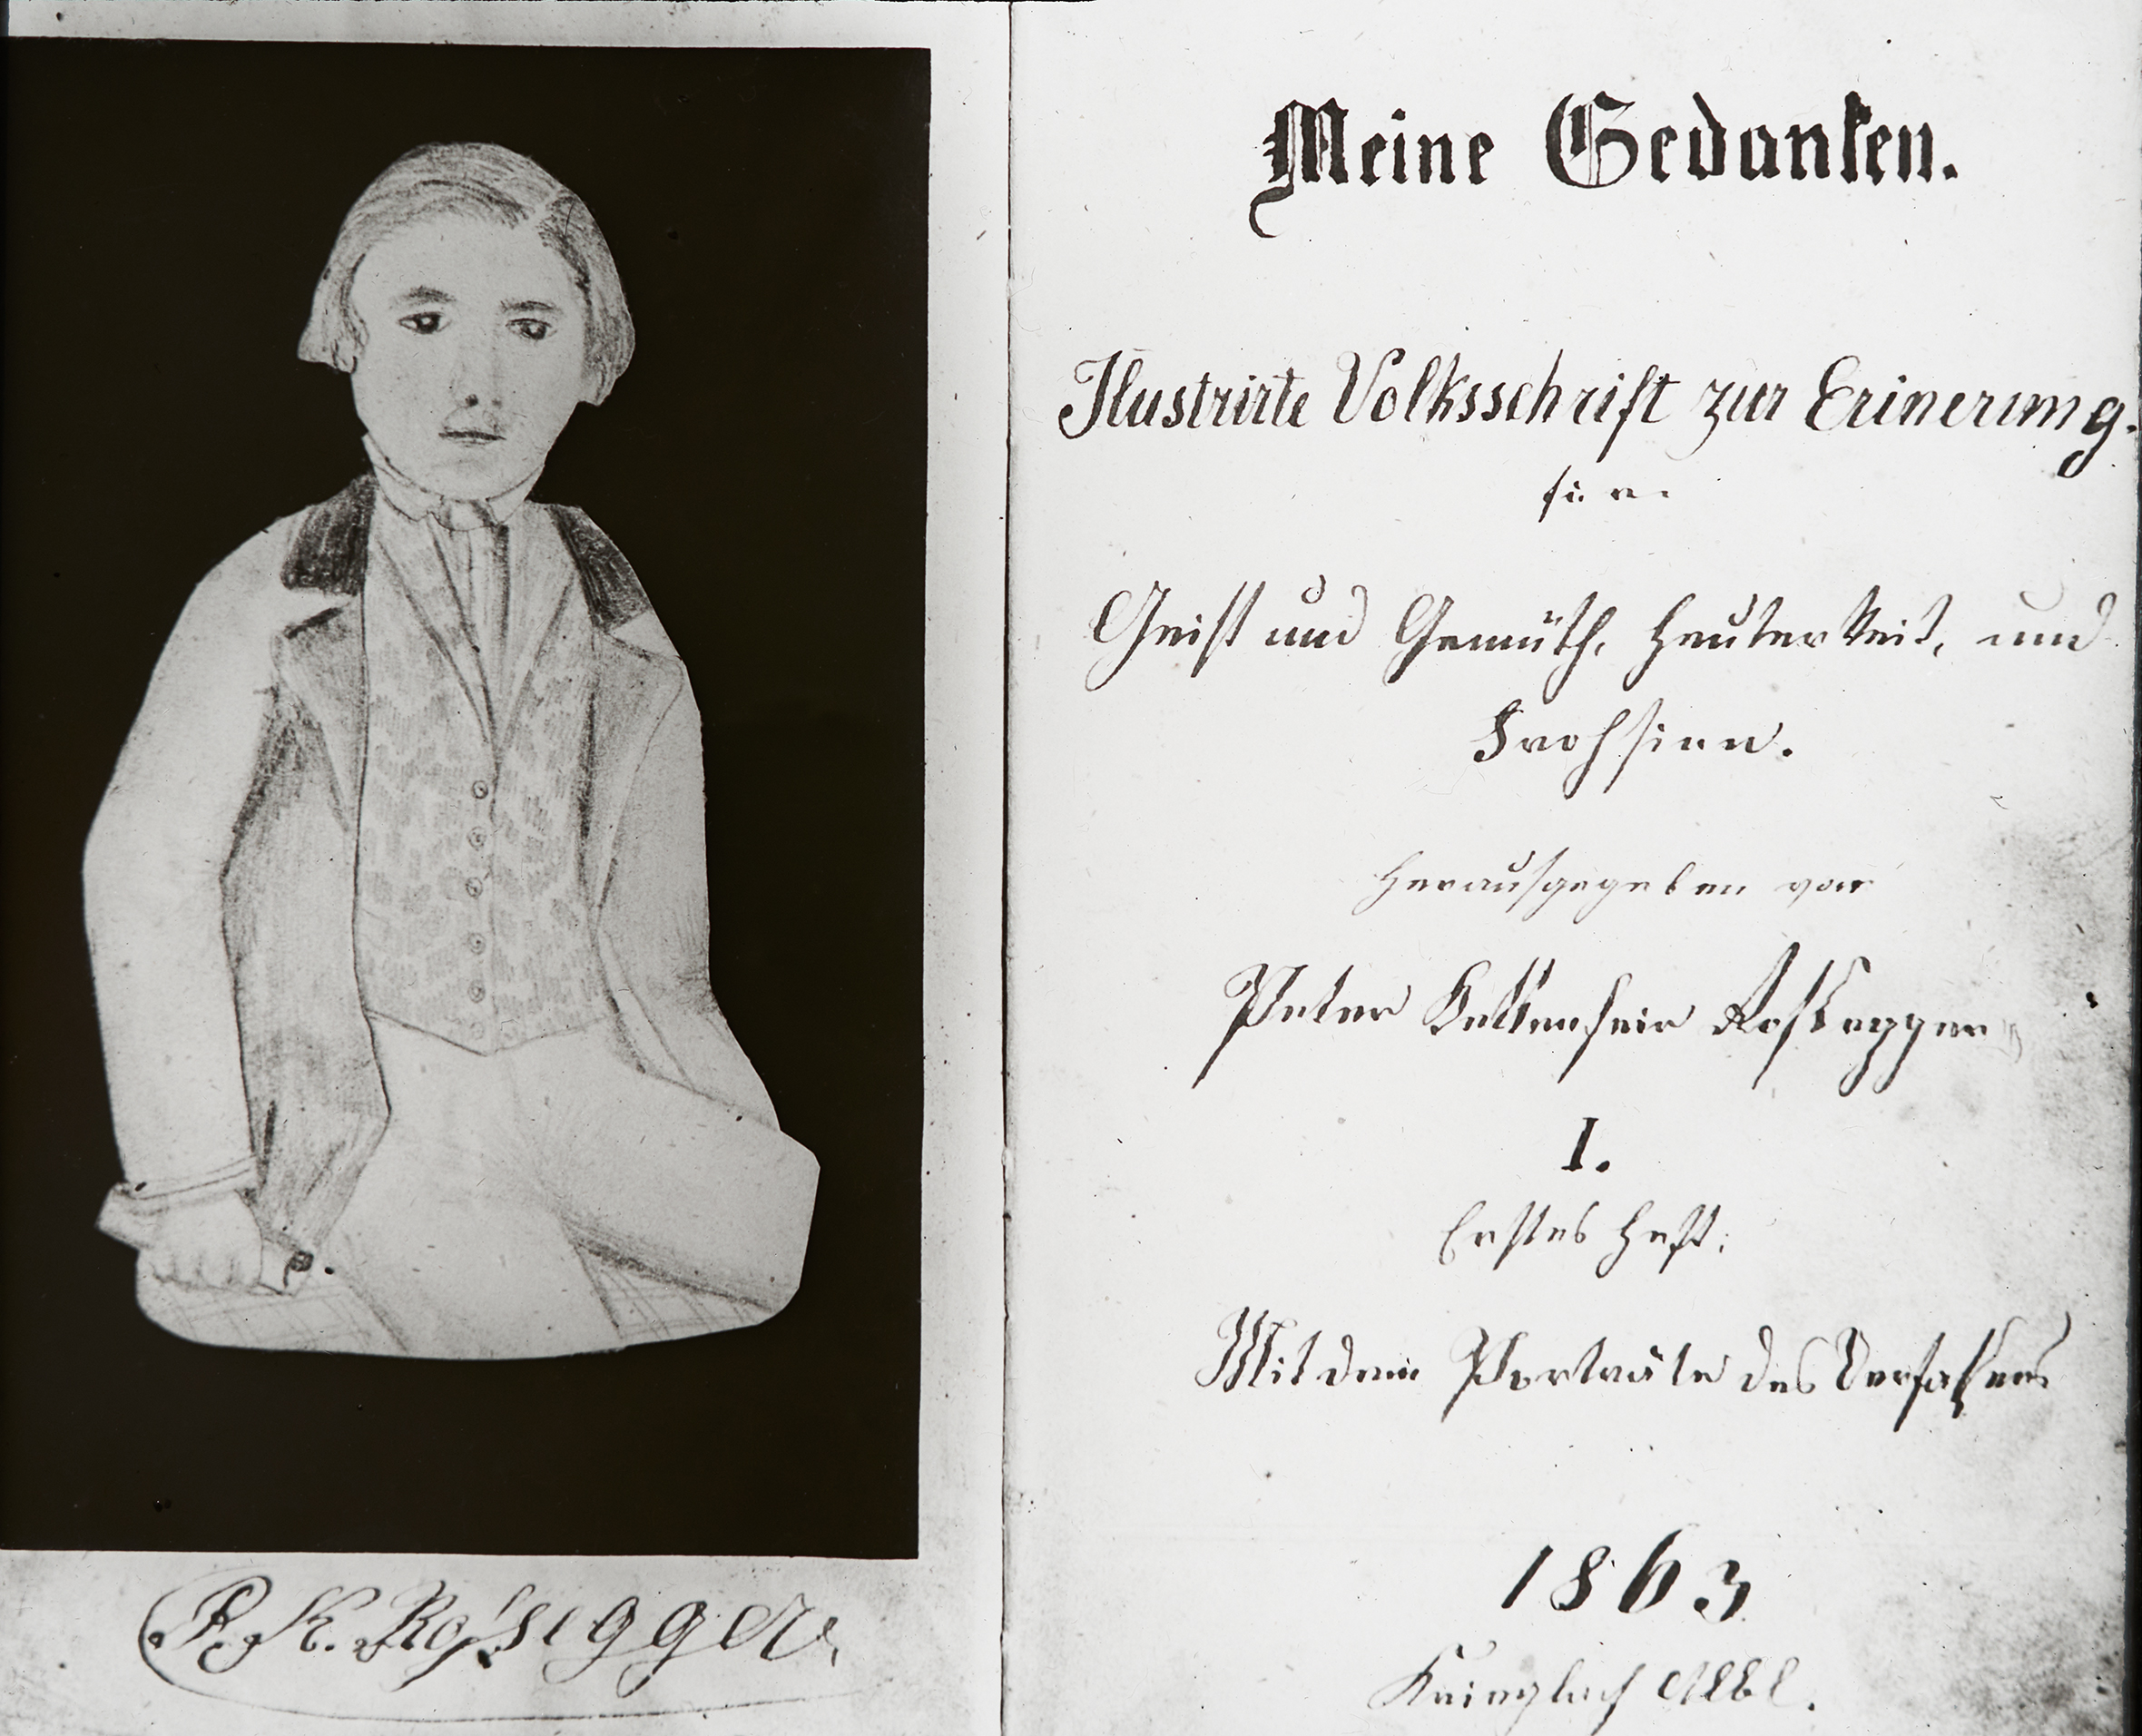 P. K. Roßegger
Meine Gedanken.
Ilustrirte Volksschrift zur Erinerung.
für
Geist und Gemüth, Heuterkeit, und
Frohsinn.
Herausgegeben von
Peter Kettenfeir Roßegger
I.
Erstes Heft.
Mit dem Porträte des Verfaßers
1863
Krieglach Alpl.